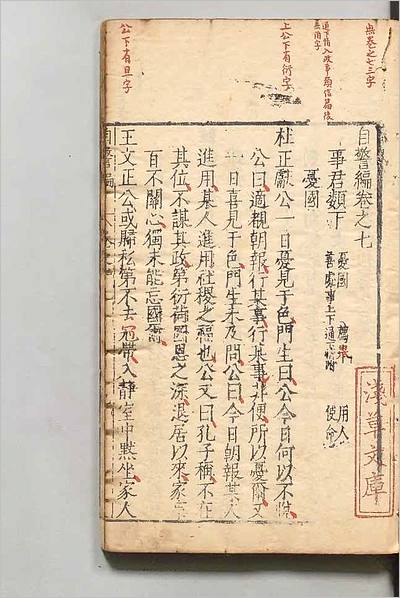 無卷之七三字
上公下有衍字
公下有旦字
自警編卷之七
事君類下
憂國
薦賢
用人
善處事上下通
使命
憂國
杜正獻公一日憂見于色門生曰公今日何以不懌
公曰適親朝報行某事行某事非便所以憂爾又
一日喜見于色門生未及問公曰今日朝報某人
進用某人進用社稷之福也公又曰孔子稱不在
其位不謀其政第衍荷國恩之深退居以來家事
百不關心獨未能忘國爾
王文正公或歸私第不去冠帶入靜室中默坐家人
自警編
淺草文庫